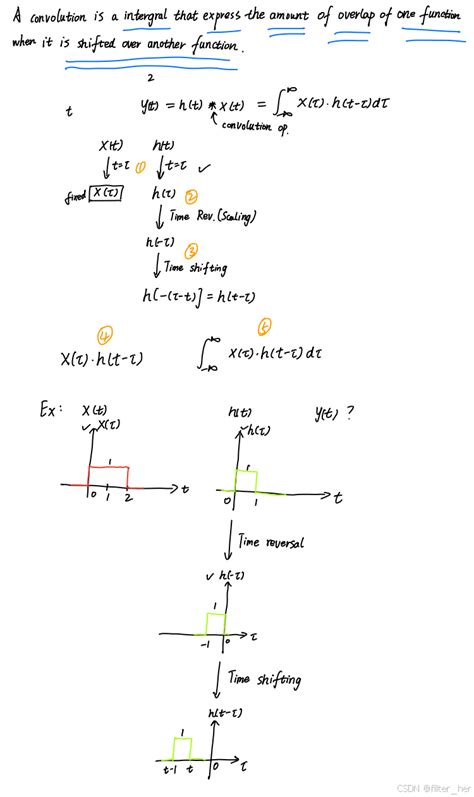 A convolution is a intergral that express the amount of overlap of one function
when it is shifted over another function.
2
t y(t) = h(t) * x(t) = ∫_{-∞}^{∞} x(τ)·h(t-τ)dτ
convolution op.
x(t) h(t)
t=τ ① t=τ ✓
fixed x(τ) h(τ) ②
Time Rev.(Scaling)
h(-τ) ③
Time shifting
h[-(τ-t)] = h(t-τ)
④ ⑤
x(τ)·h(t-τ) ∫_{-∞}^{∞} x(τ)·h(t-τ)dτ
Ex: x(t) h(t) y(t) ?
✓ x(τ) ✓ h(τ)
1 1
0 1 2 t 0 1 t
Time reversal
✓ h(-τ)
1
-1 0 τ
Time shifting
h(t-τ)
1
t-1 t 0 τ
CSDN @filter_her